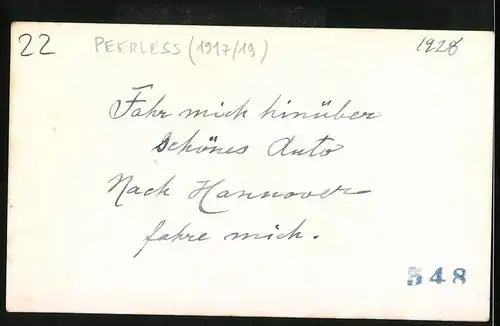 22 PEERLESS (1917/19) 1928
Fahr mich hinüber
Schönes Auto
Nach Hannover
fahre mich.
548